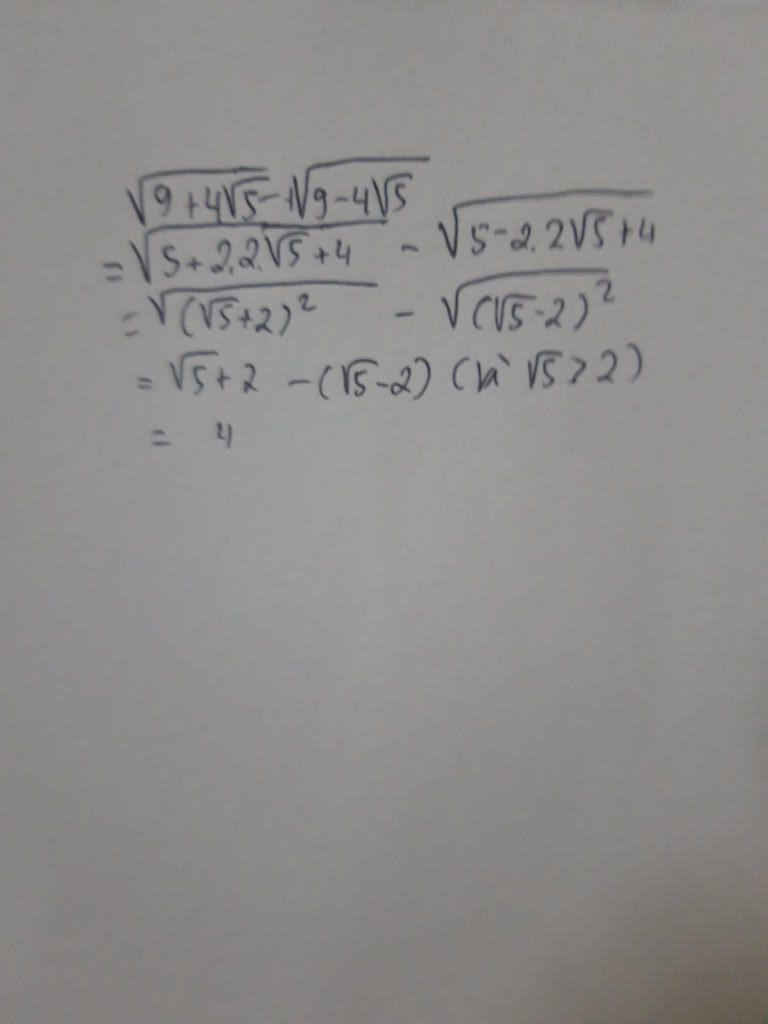 √(9+4√5) - √(9-4√5)
= √(5+2.2.√5+4) - √(5-2.2√5+4)
= √((√5+2)²) - √((√5-2)²)
= √5+2 - (√5-2) (vì √5>2)
= 4